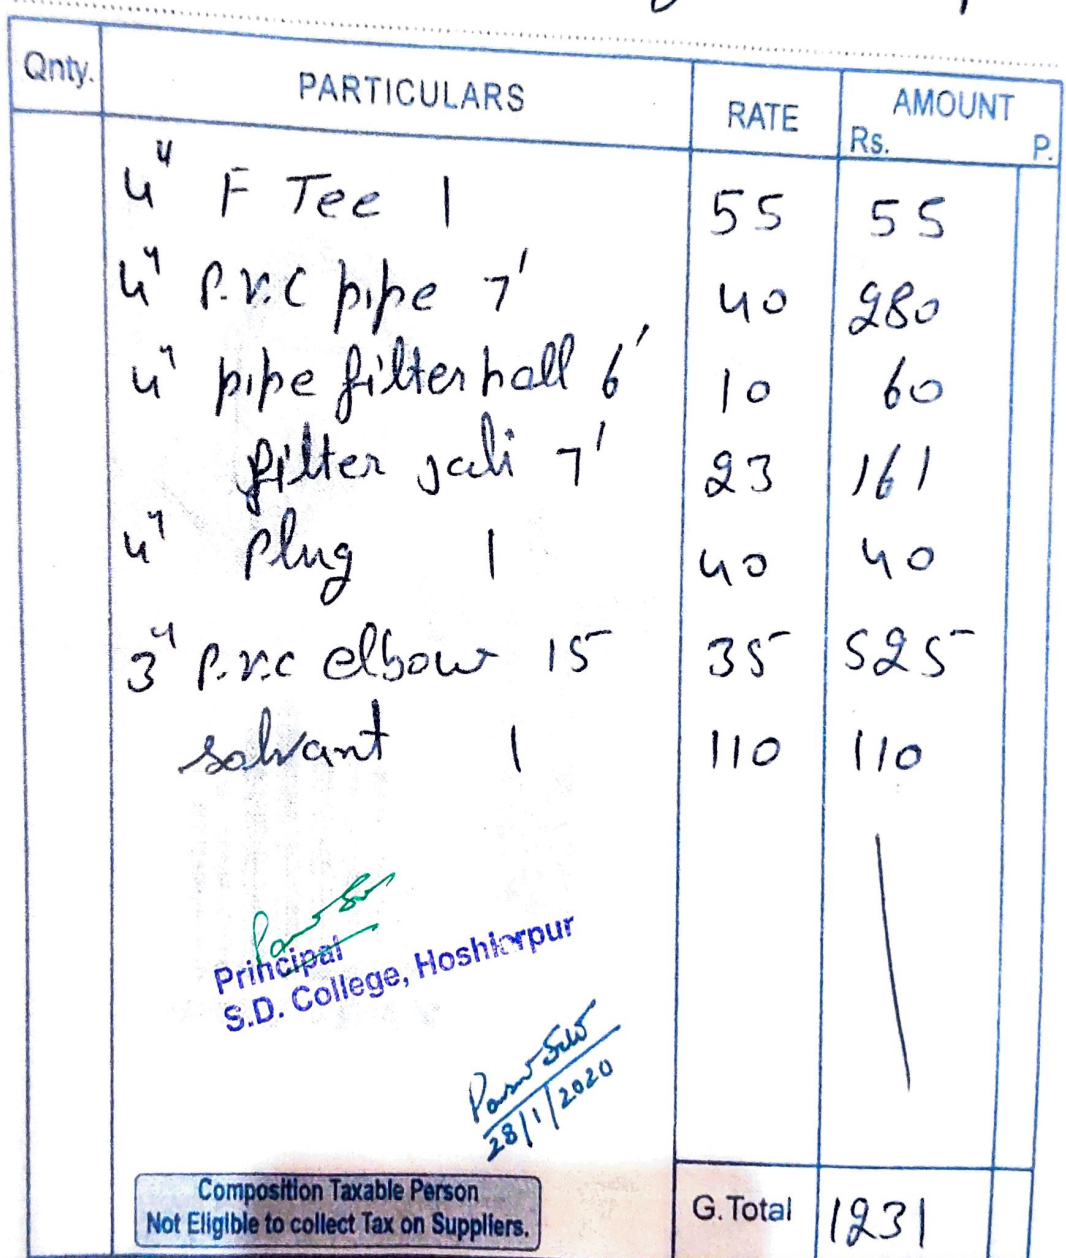 Qnty. PARTICULARS RATE AMOUNT
Rs. P.
4" F Tee 1 55 55
4" P.V.C pipe 7' 40 280
4" pipe filter hall 6' 10 60
filter jali 7' 23 161
4" Plug 1 40 40
3" P.V.C elbow 15 35 525
solvant 1 110 110
Principal
S.D. College, Hoshiarpur
28/1/2020
Composition Taxable Person
Not Eligible to collect Tax on Suppliers.
G. Total 1231